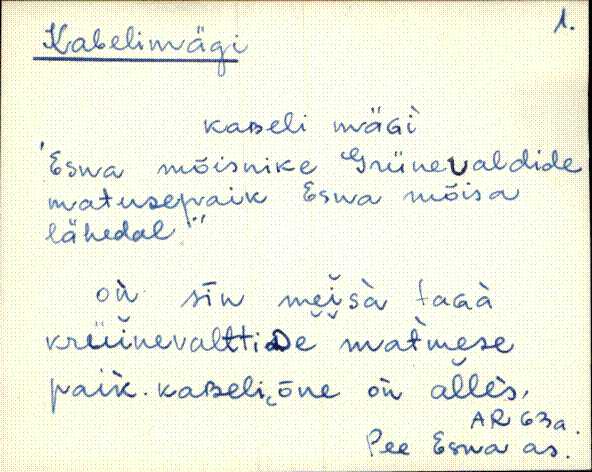 1.
Kabelimägi
kaʙeli mäɢì
'Esna mõisnike Grünevaldide
matusepaik Esna mõisa
lähedal'"
oǹ sīn mei̮sà taɢà
krǖnevalttiᴅe matmese
paìk. kaʙeli‿ōne oǹ allès,
AR 63a.
Pee Esna as.